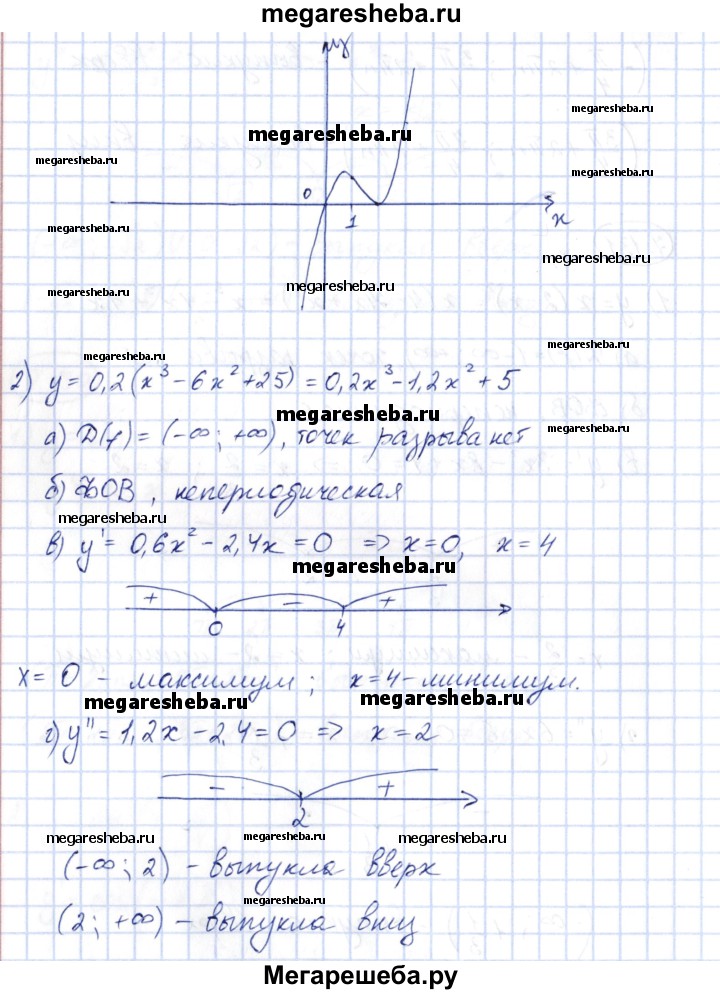 megaresheba.ru
y
megaresheba.ru
megaresheba.ru
megaresheba.ru
megaresheba.ru
0
1
x
megaresheba.ru
megaresheba.ru
megaresheba.ru
megaresheba.ru
megaresheba.ru
megaresheba.ru
2) y = 0,2(x³ - 6x² + 25) = 0,2x³ - 1,2x² + 5
megaresheba.ru
а) D(f) = (-∞; +∞), точек разрыва нет
б) ФОВ, непериодическая
megaresheba.ru
в) y' = 0,6x² - 2,4x = 0 => x = 0, x = 4
megaresheba.ru
+ - +
0 4
x = 0 - максимум; x = 4 - минимум.
megaresheba.ru megaresheba.ru
г) y'' = 1,2x - 2,4 = 0 => x = 2
- +
2
megaresheba.ru megaresheba.ru megaresheba.ru
(-∞; 2) - выпукла вверх
(2; +∞) - выпукла вниз
Мегарешеба.ру